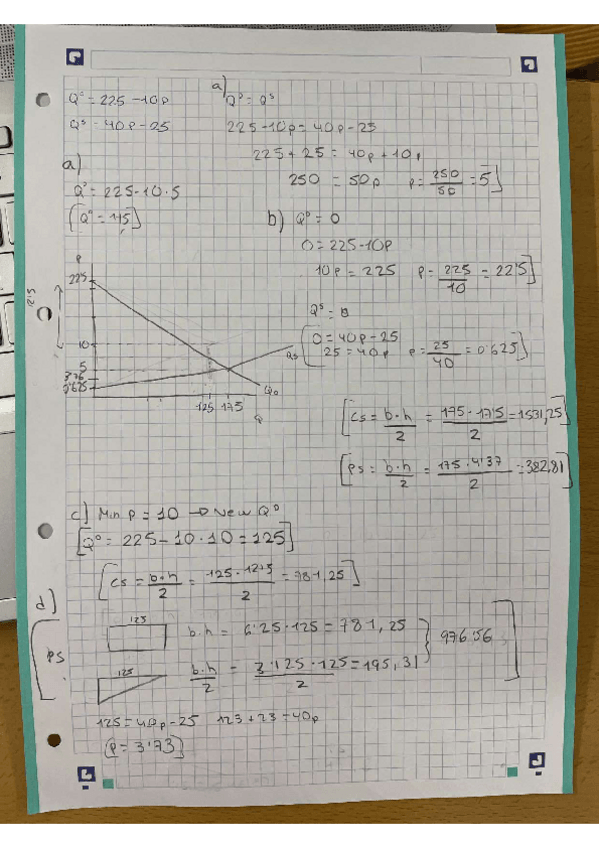 Qᴰ = 225 - 10p
Qˢ = 40p - 25
a) Qᴰ = Qˢ
225 - 10p = 40p - 25
225 + 25 = 40p + 10p
250 = 50p p = 250/50 = 5
a)
Qᴰ = 225 - 10·5
b) Qᴰ = 0
0 = 225 - 10p
10p = 225 p = 225/10 = 22'5
0 = 40p - 25
25 = 40p p = 25/40 = 0'625
P
22'5
12'5
10
5
0'625
125 175
Q
Qs
QD
CS = b·h/2 = 175·17'5/2 = 1531,25
PS = b·h/2 = 175·4'37/2 = 382,81
c) Min p = 10 → New Qᴰ
Qᴰ = 225 - 10·10 = 125
CS = b·h/2 = 125·12'5/2 = 781,25
d)
PS
125
b·h = 6'25·125 = 781,25
976'56
125
b·h/2 = 3'125·125/2 = 195,31
125 = 40p - 25 125 + 25 = 40p